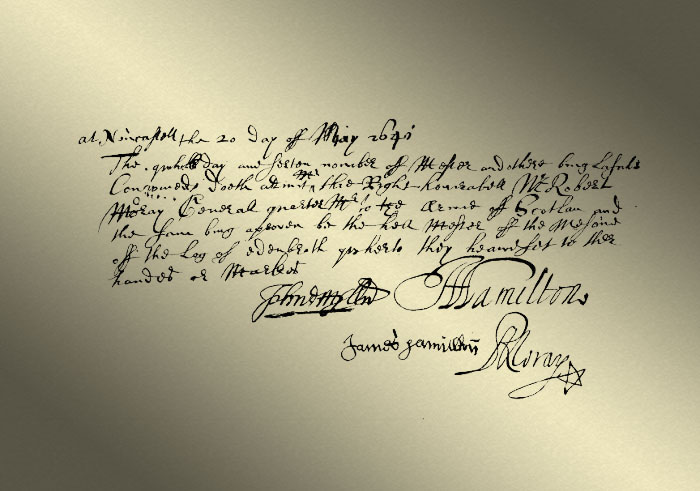 at Neucastell the 20 day off May 1641
The quhilk day ane serten nomber off Mester and othere bing lafule
Conveened doeth admit Mr the Right honerabell Mr Robert
Moray General quarter Mr to the Armie off Scotlan and
the same bing aproven be the hell Mester off the Mesone
off the Log of edenbroth quherto they heaue set to ther
handes or markes
Johne Mylln A Hamilton
James Hamilton R Moray